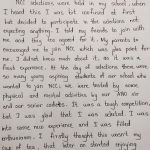 NCC selections were held in my school, when
I heard this I was bit confused at first
but decided to participate in the selections not
expecting anything. I told my friends to join with
me and they too agreed for it. My parents too
encouraged me to join NCC which was plus point for
me. I didn't knew much about it, as it was a
first experience. At the day of selections there were
so many young aspiring students of our school who
wanted to join NCC. We were tested by some
physical and mental activities by our ANO Sir
and our senior cadets. It was a tough competition,
but I was glad that I was selected. I was
into some new experience and I was filled
enthusiasm. I firstly thought this wasn't my
but later on started enjoying